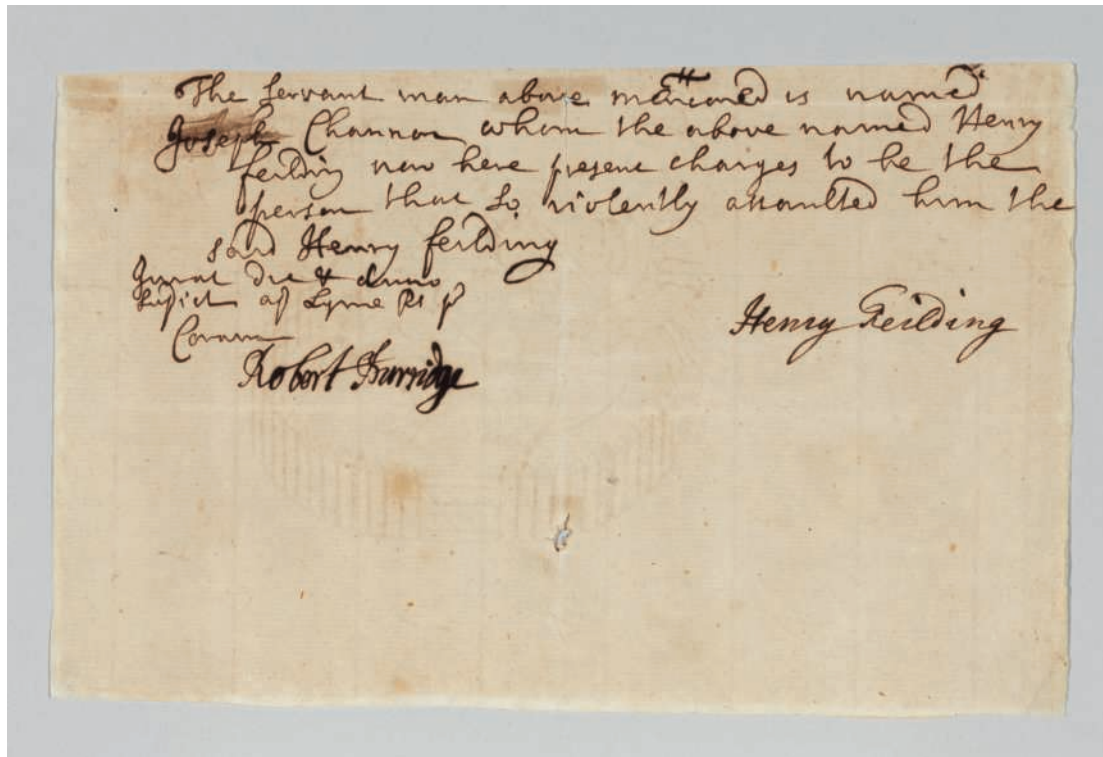 The servant man above mentioned is named
Joseph Channon whom the above named Henry
feilding now here present charges to be the
person that so violently assaulted him the
said Henry feilding
Jurat Die & Anno
supdict ap Lyme Rs p
Coram
Henry Feilding
Robert Burridge